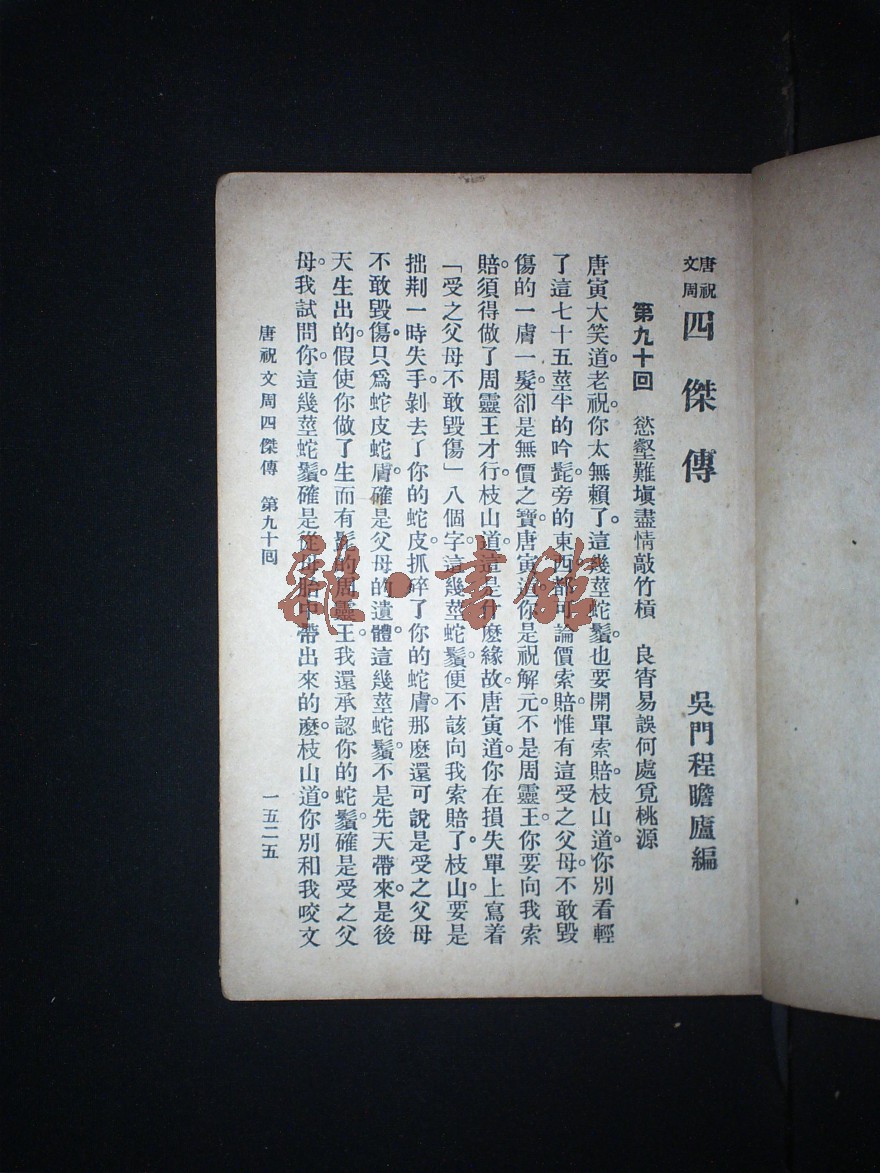 唐祝文周 四傑傳
吳門程瞻廬編
第九十回 慾壑難塡盡情敲竹槓 良宵易誤何處覓桃源
唐寅大笑道。老祝你太無賴了。這幾莖蛇鬚。也要開單索賠。枝山道。你別看輕
了這七十五莖半的吟髭。旁的東西都可論價索賠。惟有這受之父母。不敢毀
傷的一膚一髮。卻是無價之寶。唐寅道。你是祝解元。不是周靈王。你要向我索
賠。須得做了周靈王才行。枝山道。這是什麼緣故。唐寅道。你在損失單上寫着
「受之父母不敢毀傷」八個字。這幾莖蛇鬚。便不該向我索賠了。枝山。要是
拙荆一時失手。剝去了你的蛇皮。抓碎了你的蛇膚。那麽還可說是受之父母
不敢毀傷。只爲蛇皮蛇膚。確是父母的遺體。這幾莖蛇鬚。不是先天帶來。是後
天生出的。假使你做了生而有髭的周靈王。我還承認你的蛇鬚。確是受之父
母。我試問你。這幾莖蛇鬚。確是從母胎中帶出來的麽。枝山道。你別和我咬文
唐祝文周四傑傳 第九十回
一五二五
雜·書館